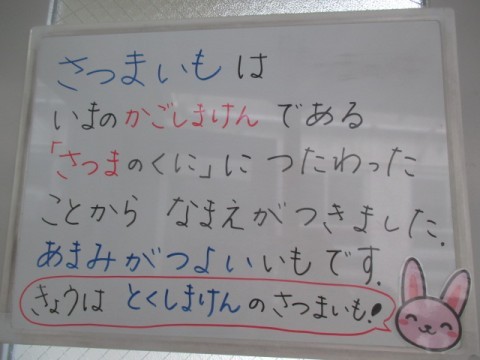 さつまいもは
いまのかごしまけんである
「さつまのくに」につたわった
ことから なまえがつきました.
あまみがつよいいもです.
きょうは とくしまけんのさつまいも!